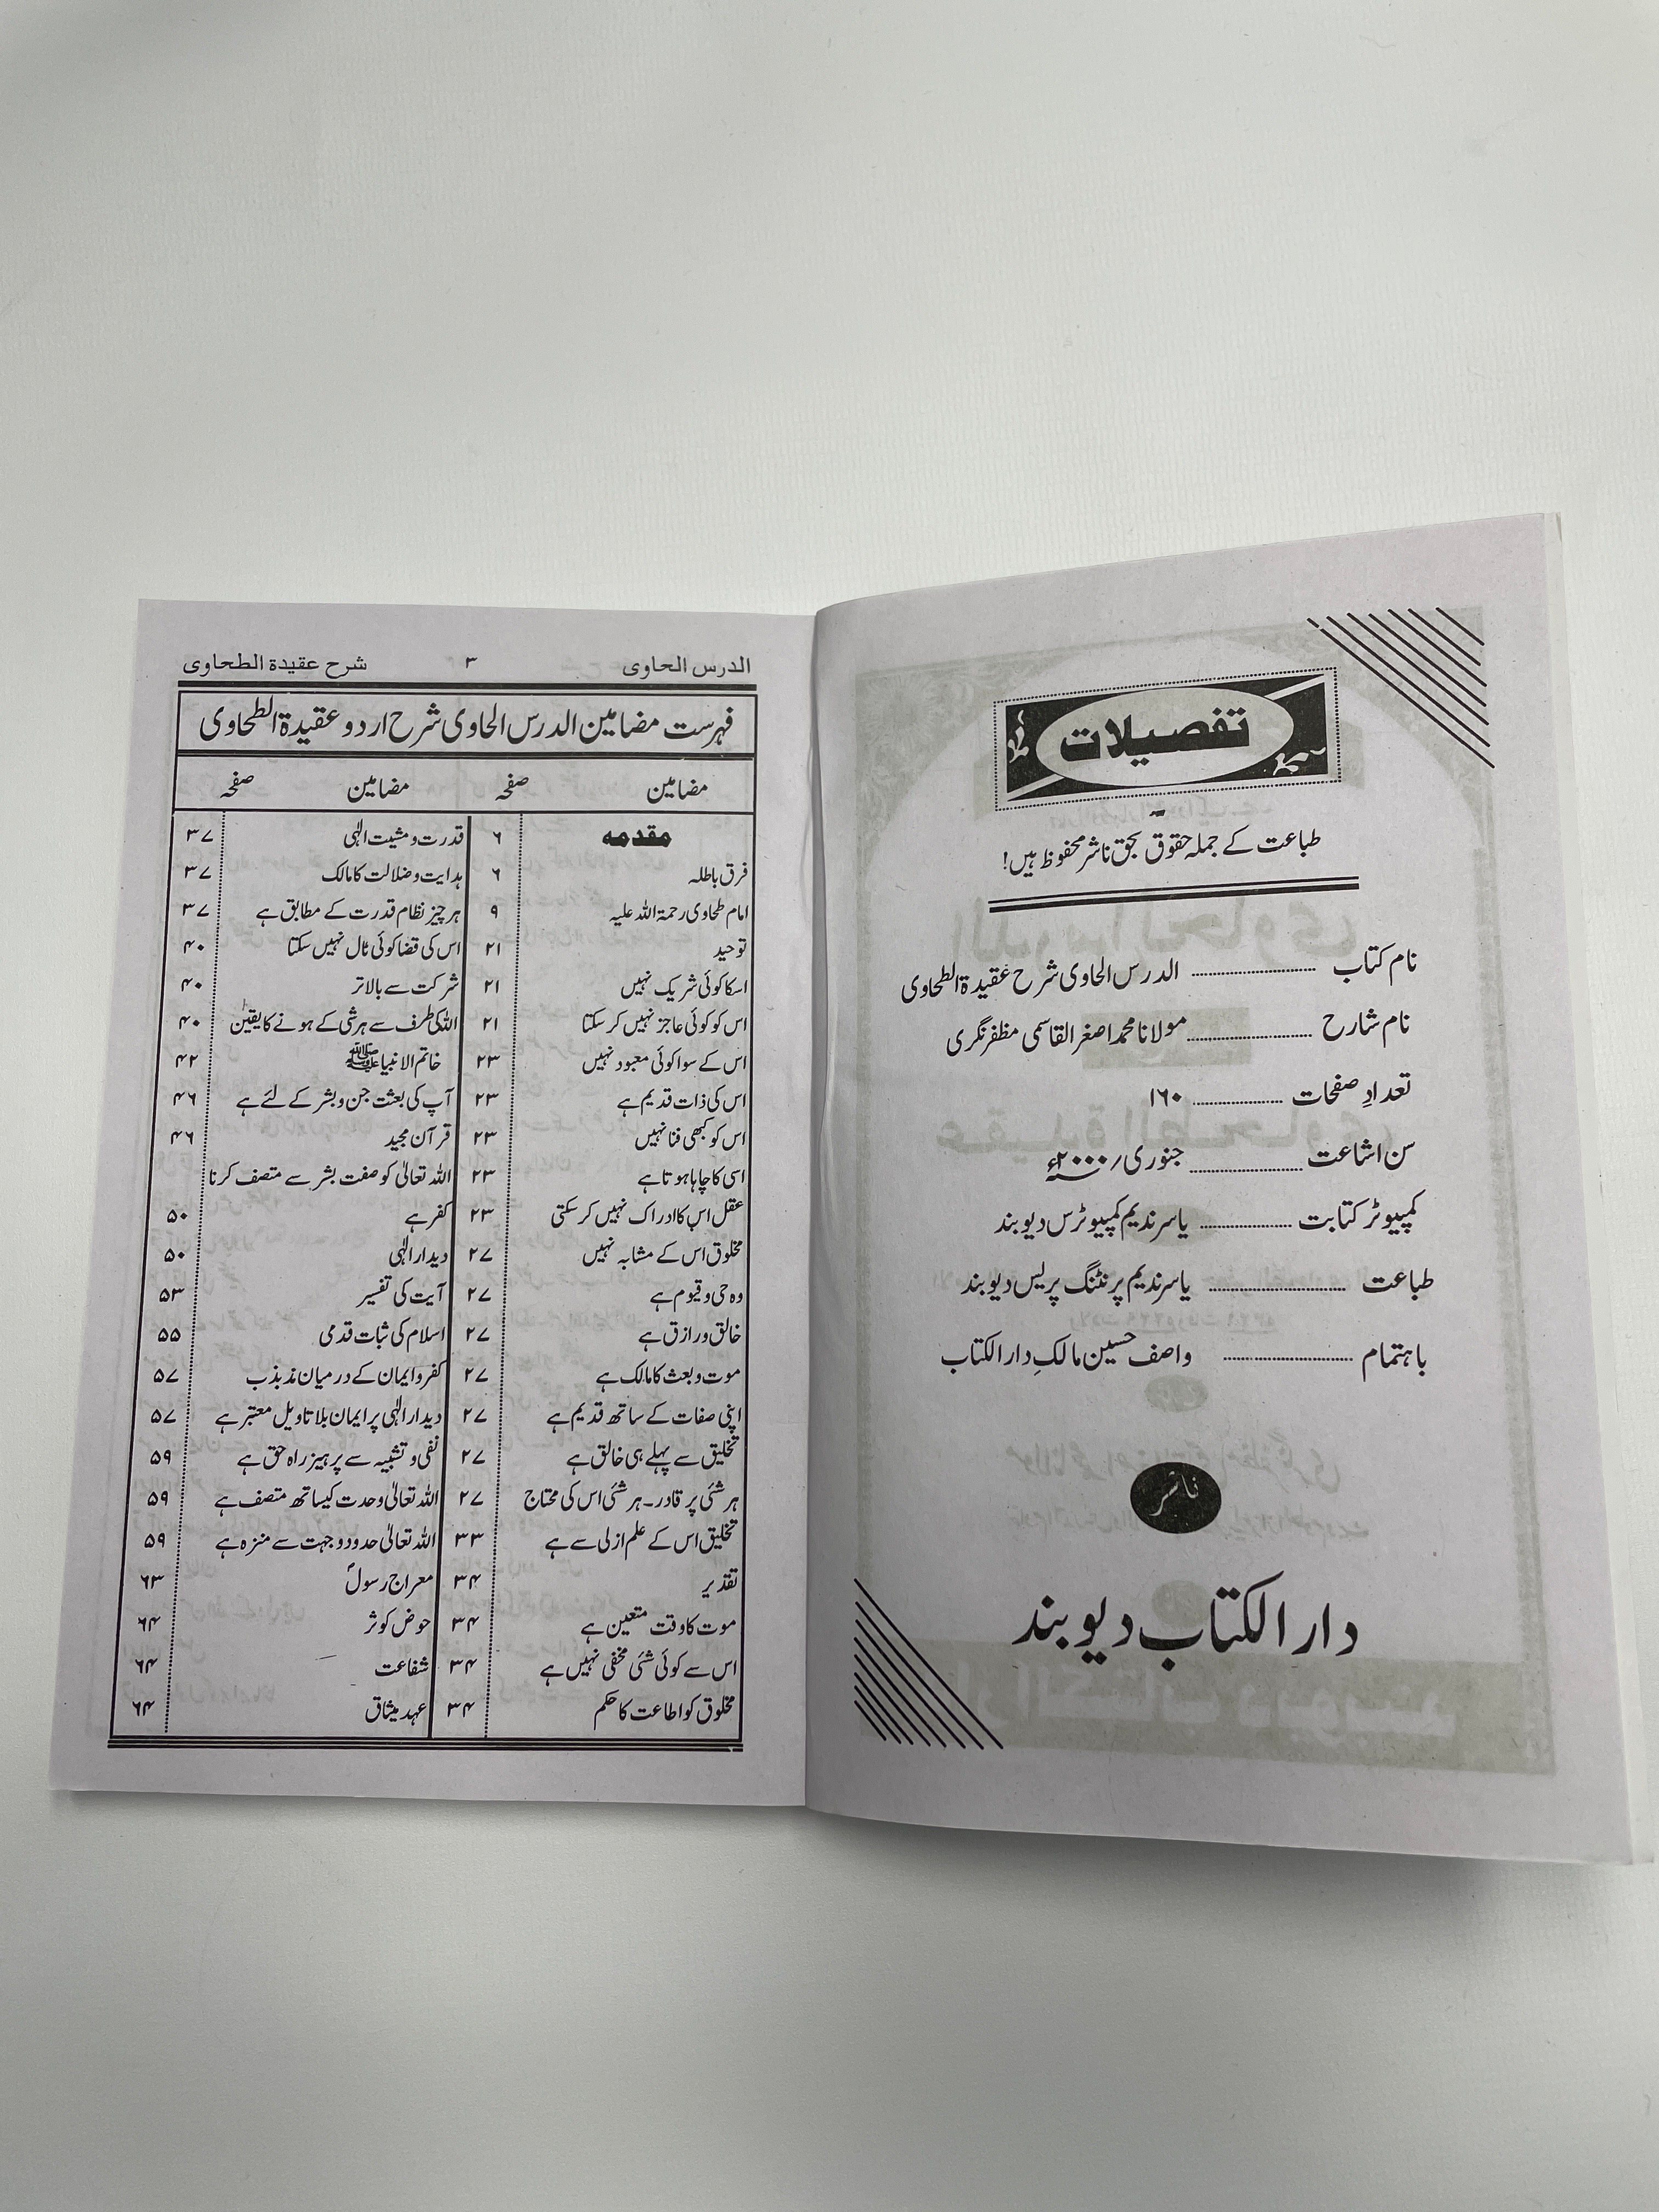 تفصیلات
طباعت کے جملہ حقوق بحق ناشر محفوظ ہیں!
نام کتاب ............ الدرس الحاوی شرح عقیدۃ الطحاوی
نام شارح ............ مولانا محمد اصغر القاسمی مظفر نگری
تعدادِ صفحات ............ ۱۶۰
سن اشاعت ............ جنوری؍ ۲۰۰۰ء
کمپیوٹر کتابت ............ یاسر ندیم کمپیوٹرس دیوبند
طباعت ............ یاسر ندیم پرنٹنگ پریس دیوبند
باہتمام ............ واصف حسین مالکِ دار الکتاب
ناشر
دار الکتاب دیوبند
الدرس الحاوی ۳ شرح عقیدۃ الطحاوی
فہرست مضامین الدرس الحاوی شرح اردو عقیدۃ الطحاوی
مضامین صفحہ مضامین صفحہ
مقدمہ ۶ قدرت و مشیت الٰہی ۳۷
فرق باطلہ ۶ ہدایت و ضلالت کا مالک ۳۷
امام طحاوی رحمۃ اللہ علیہ ۹ ہر چیز نظام قدرت کے مطابق ہے ۳۷
توحید ۲۱ اس کی قضا کوئی ٹال نہیں سکتا ۴۰
اسکا کوئی شریک نہیں ۲۱ شرکت سے بالاتر ۴۰
اس کو کوئی عاجز نہیں کر سکتا ۲۱ اللہ کی طرف سے ہر شی کے ہونے کا یقین ۴۰
اس کے سوا کوئی معبود نہیں ۲۳ خاتم الانبیاء ﷺ ۴۲
اس کی ذات قدیم ہے ۲۳ آپ کی بعثت جن و بشر کے لئے ہے ۴۶
اس کو کبھی فنا نہیں ۲۳ قرآن مجید ۴۶
اسی کا چاہا ہوتا ہے ۲۳ اللہ تعالیٰ کو صفت بشر سے متصف کرنا
عقل اس کا ادراک نہیں کر سکتی ۲۳ کفر ہے ۵۰
مخلوق اس کے مشابہ نہیں ۲۷ دیدار الٰہی ۵۰
وہ حی و قیوم ہے ۲۷ آیت کی تفسیر ۵۳
خالق و رازق ہے ۲۷ اسلام کی ثبات قدمی ۵۵
موت و بعث کا مالک ہے ۲۷ کفر و ایمان کے درمیان مذبذب ۵۷
اپنی صفات کے ساتھ قدیم ہے ۲۷ دیدار الٰہی پر ایمان بلا تاویل معتبر ہے ۵۷
تخلیق سے پہلے ہی خالق ہے ۲۷ نفی و تشبیہ سے پرہیز راہ حق ہے ۵۹
ہر شئی پر قادر۔ ہر شئی اس کی محتاج ۲۷ اللہ تعالیٰ وحدت کیساتھ متصف ہے ۵۹
تخلیق اس کے علم ازلی سے ہے ۳۳ اللہ تعالیٰ حدود و جہت سے منزہ ہے ۵۹
تقدیر ۳۴ معراج رسولؐ ۶۳
موت کا وقت متعین ہے ۳۴ حوض کوثر ۶۴
اس سے کوئی شئی مخفی نہیں ہے ۳۴ شفاعت ۶۴
مخلوق کو اطاعت کا حکم ۳۴ عہد میثاق ۶۴